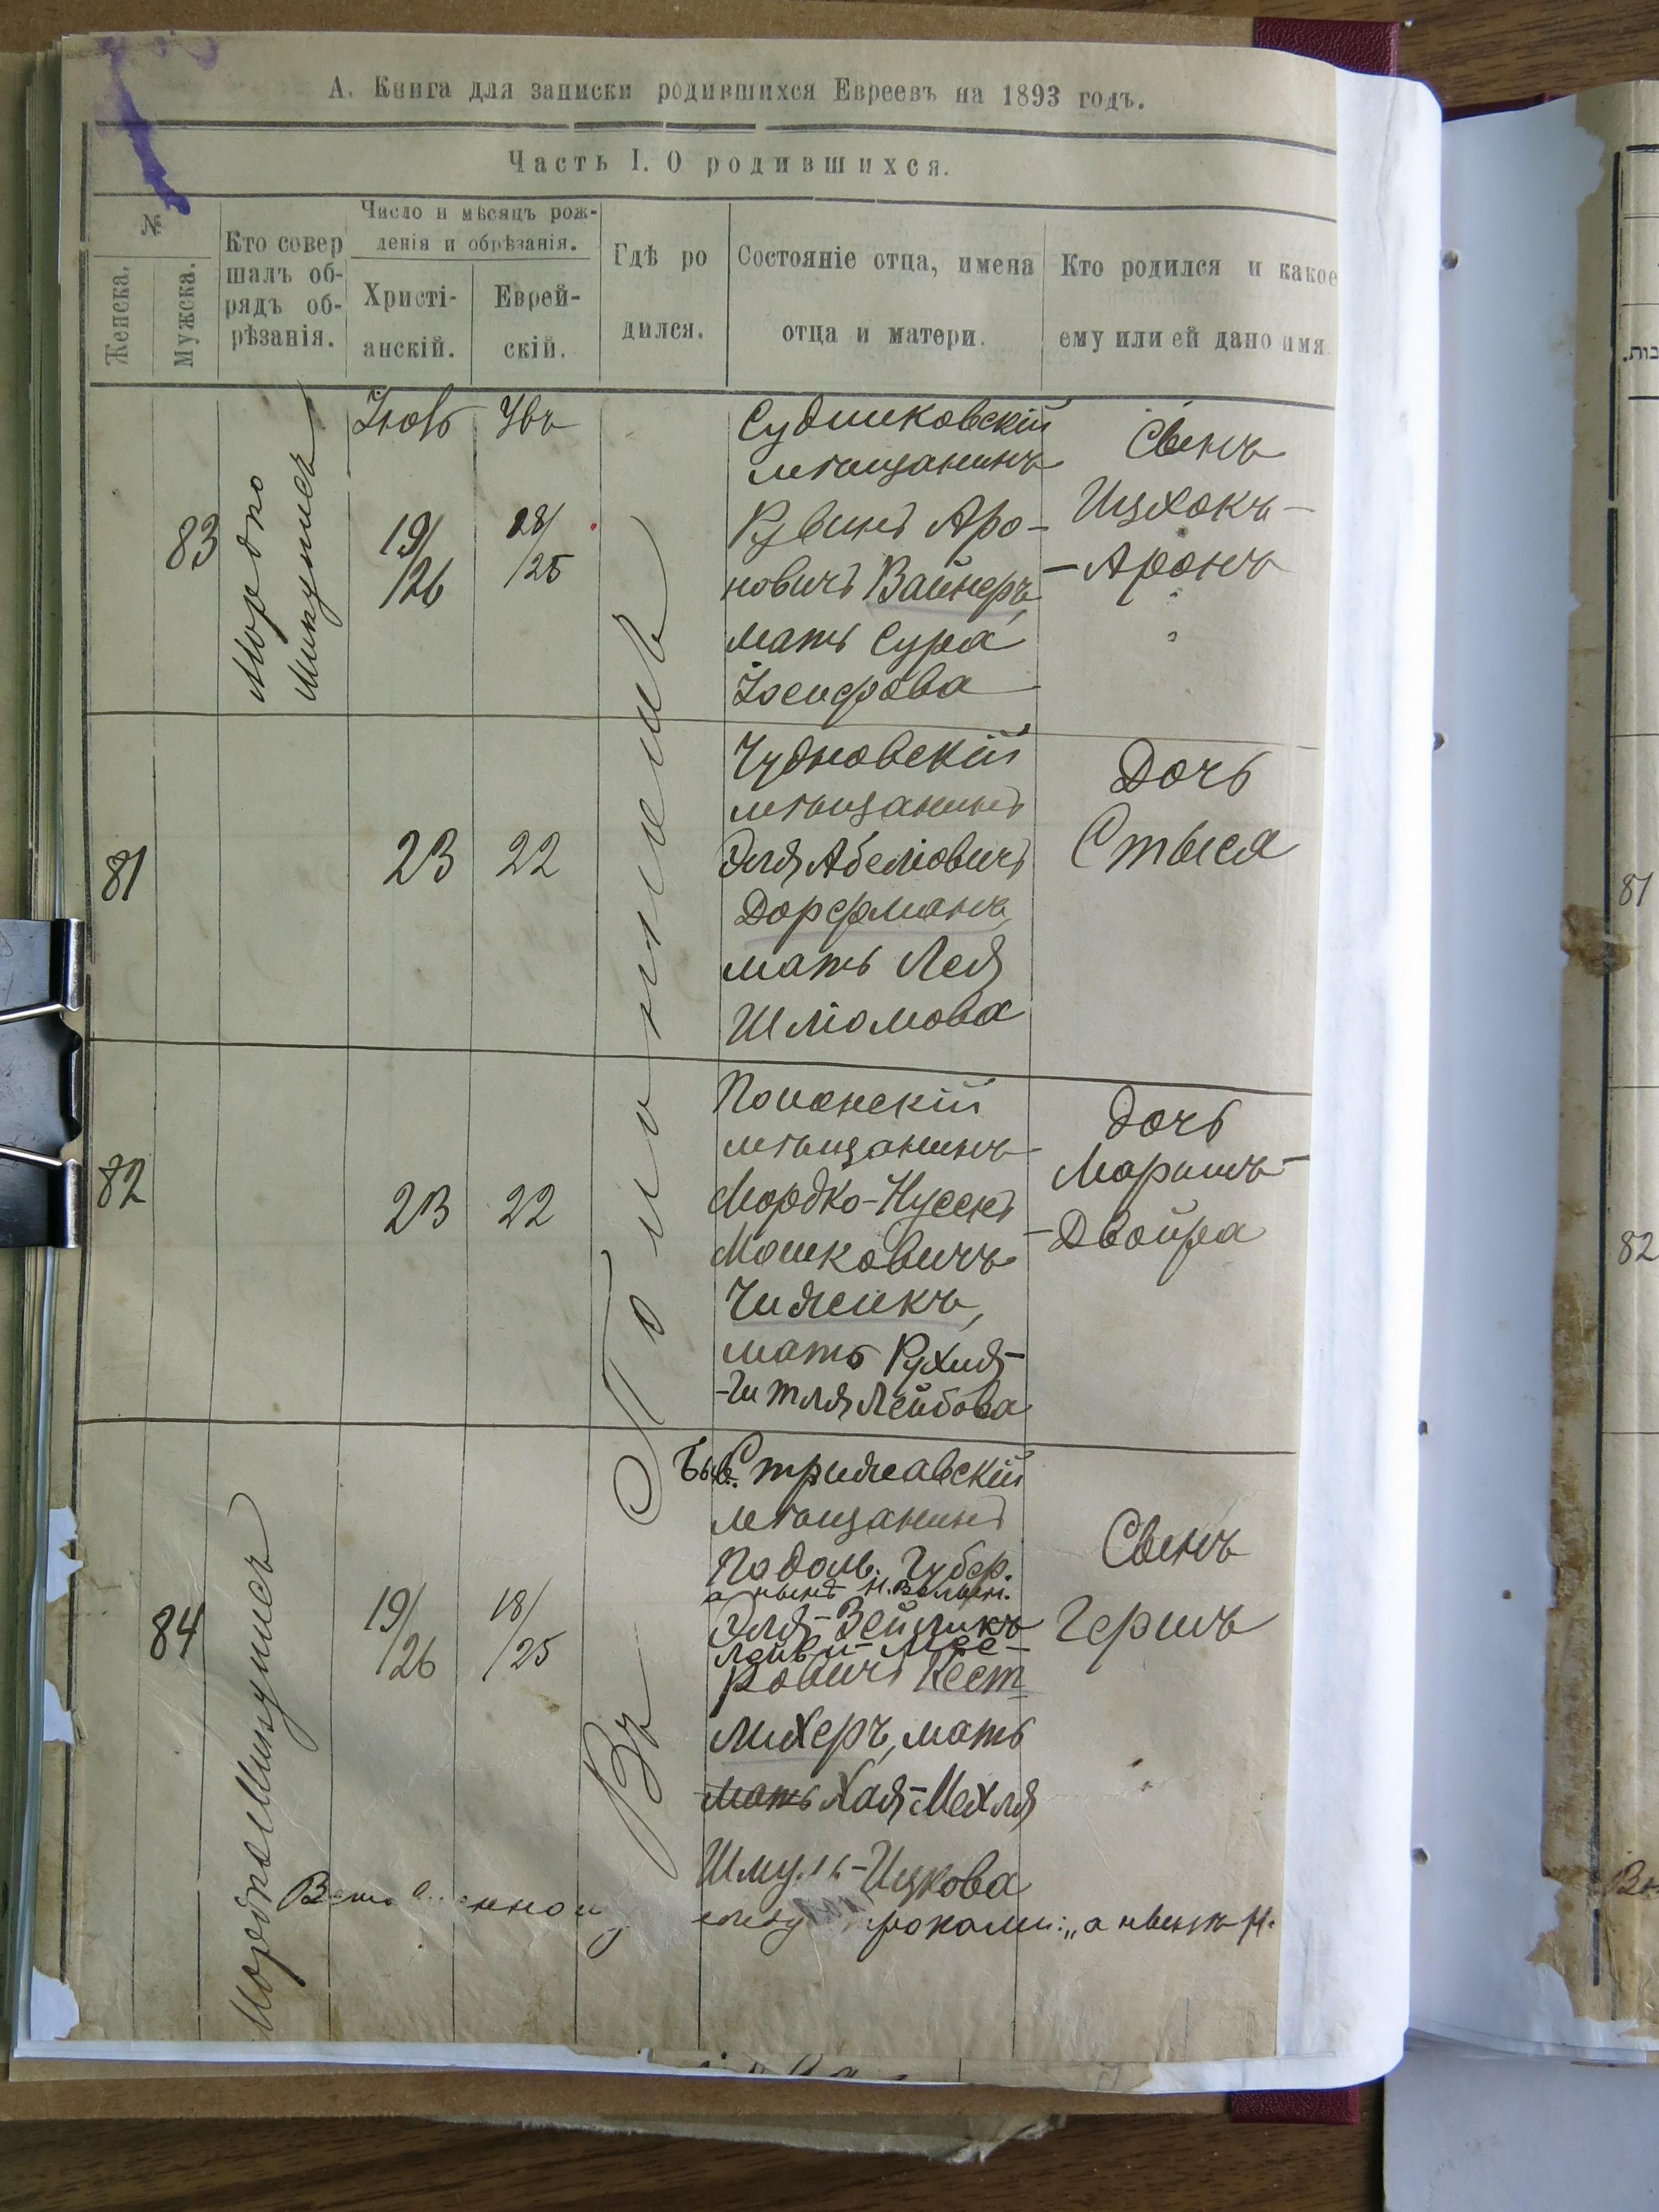 А. Книга для записки родившихся Евреевъ на 1893 годъ.
Часть I. О родившихся.
№
Женска.
Мужска.
Кто совер
шалъ об-
рядъ об-
рѣзанія.
Число и мѣсяцъ рож-
денія и обрѣзанія.
Христі-
анскій.
Еврей-
скій.
Гдѣ ро
дился.
Состояніе отца, имена
отца и матери.
Кто родился и какое
ему или ей дано имя.
83
Мордко
19/
/26
/25
Судилковскій
мѣщанинъ
Рувинъ Аро-
новичъ Вайнеръ,
мать Сура
Іосифова
Сынъ
Ицхокъ-
-Аронъ
81
23
22
Чудновскій
мѣщанинъ
Эля Абеліовичъ
Дорфманъ,
мать Лея
Шліомова
Дочь
Стыся
82
23
22
Полонскій
мѣщанинъ
Мордко-Нусенъ
Мошковичъ
Чижикъ,
мать Рухля-
-Гитля Лейбова
дочь
-Двойра
84
Мордко
19/
/26
18/
/25
Въ Полонномъ
Быв. Стрижавскій
мѣщанинъ
Подоль. Губер.
а нынѣ Н. Волын.
Эля-Зейликъ
Мее-
ровичъ Кест
лихеръ, мать
мать Хая-Мехля
Шмуль-Ицкова
Сынъ
Гершъ
строками: „а нынѣ Н.
81
82